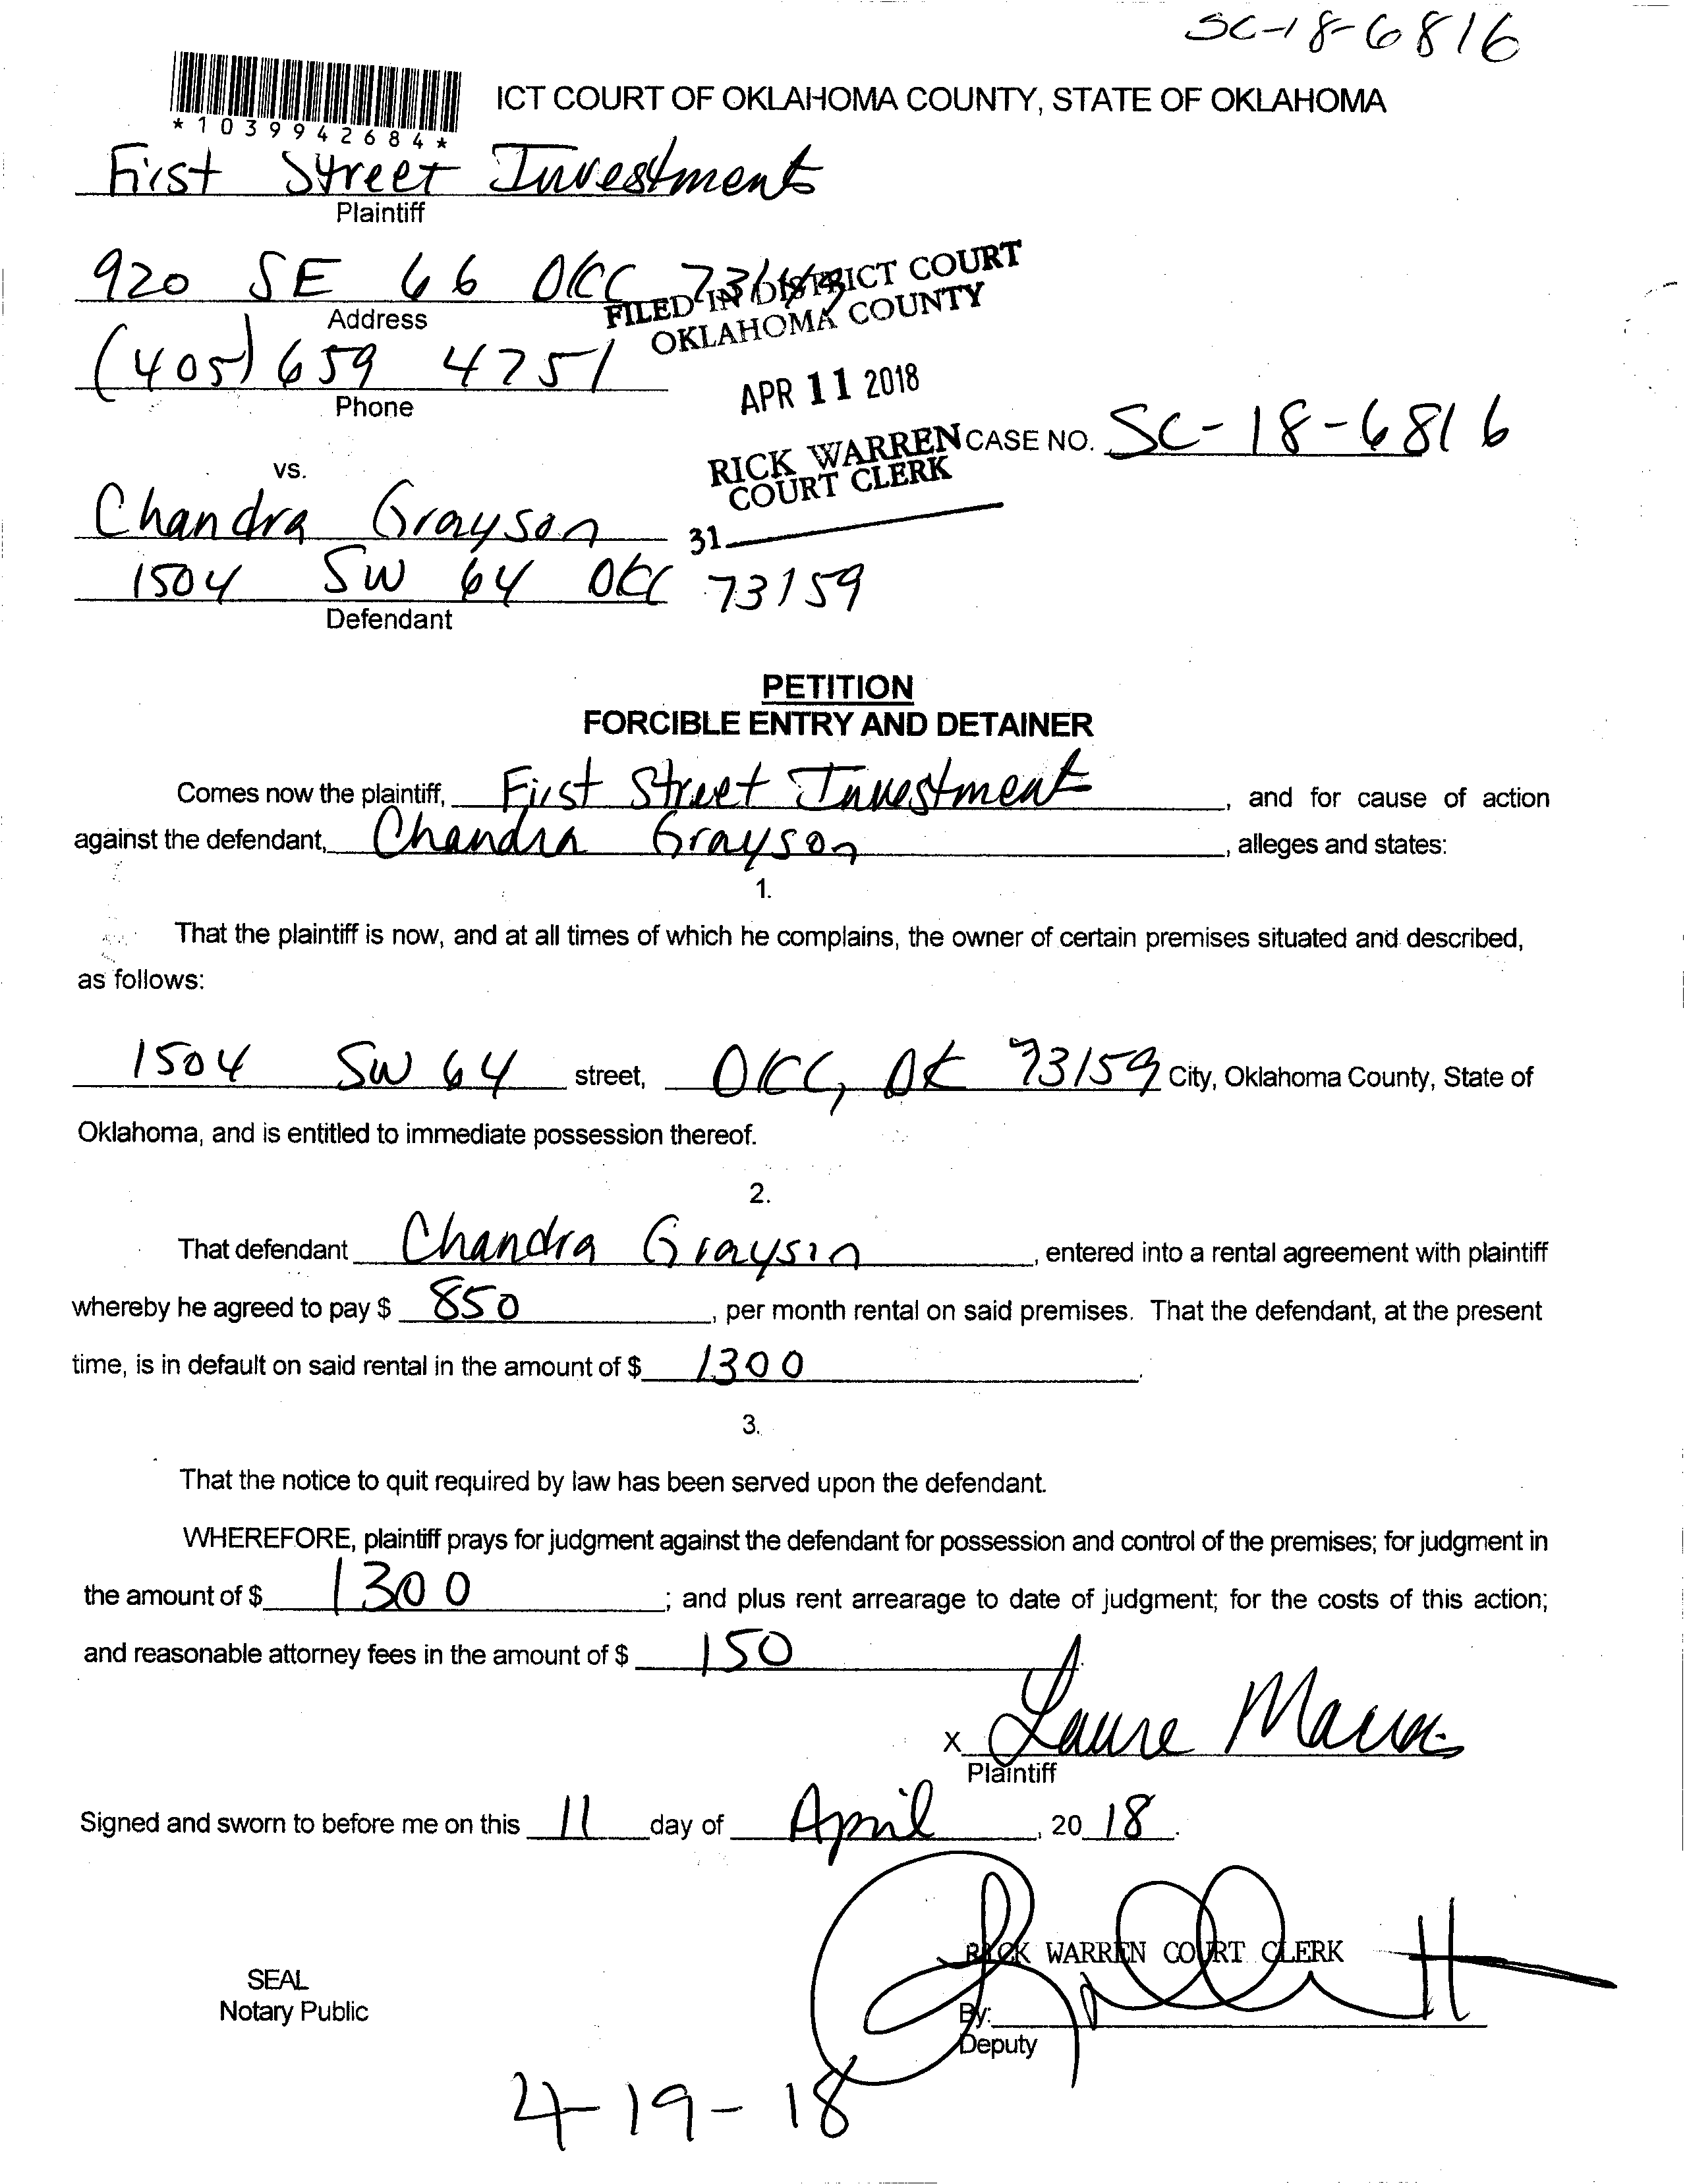 SC-18-6816
ICT COURT OF OKLAHOMA COUNTY, STATE OF OKLAHOMA
*1039942684*
First Street Investments
Plaintiff
920 SE 66 OKC
FILED IN DISTRICT COURT
OKLAHOMA COUNTY
Address
(405) 659 4751
Phone
APR 11 2018
RICK WARREN
COURT CLERK
CASE NO. SC-18-6816
vs.
Chandra Grayson
31
1504 SW 64 OKC 73159
Defendant
PETITION
FORCIBLE ENTRY AND DETAINER
Comes now the plaintiff, First Street Investment, and for cause of action
against the defendant, Chandra Grayson, alleges and states:
1.
That the plaintiff is now, and at all times of which he complains, the owner of certain premises situated and described,
as follows:
1504 SW 64 street, OKC, OK 73159 City, Oklahoma County, State of
Oklahoma, and is entitled to immediate possession thereof.
2.
That defendant Chandra Grayson, entered into a rental agreement with plaintiff
whereby he agreed to pay $ 850, per month rental on said premises. That the defendant, at the present
time, is in default on said rental in the amount of $ 1300.
3.
That the notice to quit required by law has been served upon the defendant.
WHEREFORE, plaintiff prays for judgment against the defendant for possession and control of the premises; for judgment in
the amount of $ 1300; and plus rent arrearage to date of judgment; for the costs of this action;
and reasonable attorney fees in the amount of $ 150.
x Laure
Plaintiff
Signed and sworn to before me on this 11 day of April, 20 18.
RICK WARREN COURT CLERK
SEAL
Notary Public
By:
Deputy
4-19-18